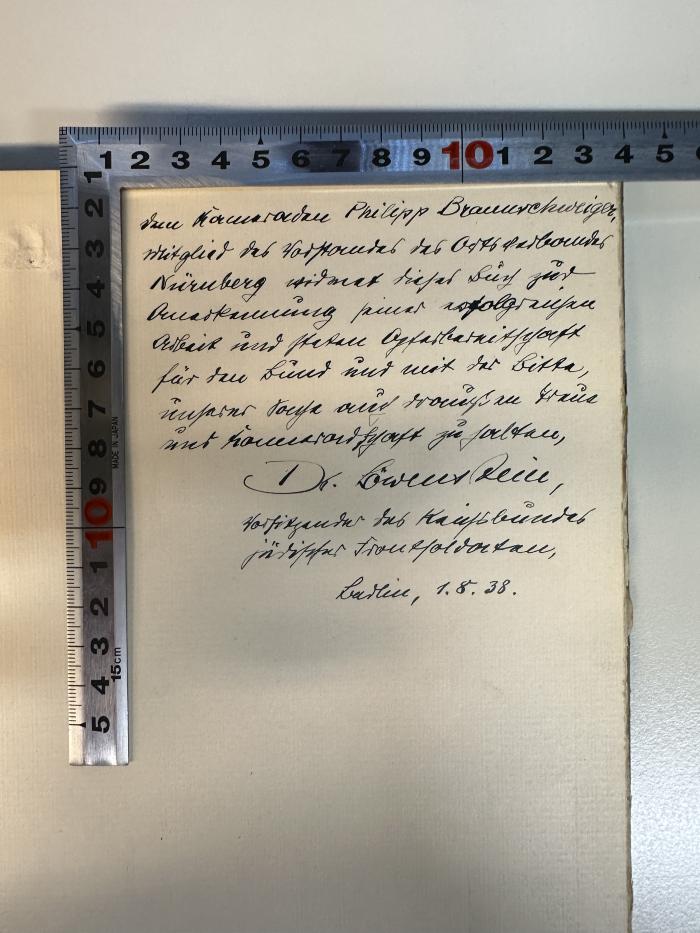 1 2 3 4 5 6 7 8 9 10 1 2 3 4 5
1 2 3 4 5 6 7 8 9 10 1 2 3 4 5
MADE IN JAPAN
15cm
dem Kameraden Philipp Braunschweiger,
Mitglied des Vorstandes des Ortsverbandes
Nürnberg widmet dieses Buch zur
Anerkennung seiner erfolgreichen
Arbeit und steten Opferbereitschaft
für den Bund und mit der Bitte,
unserer Sache auch draußen Treue
und Kameradschaft zu halten,
Dr. Löwenstein,
Vorsitzender des Reichsbundes
jüdischer Frontsoldaten,
Berlin, 1.8.38.